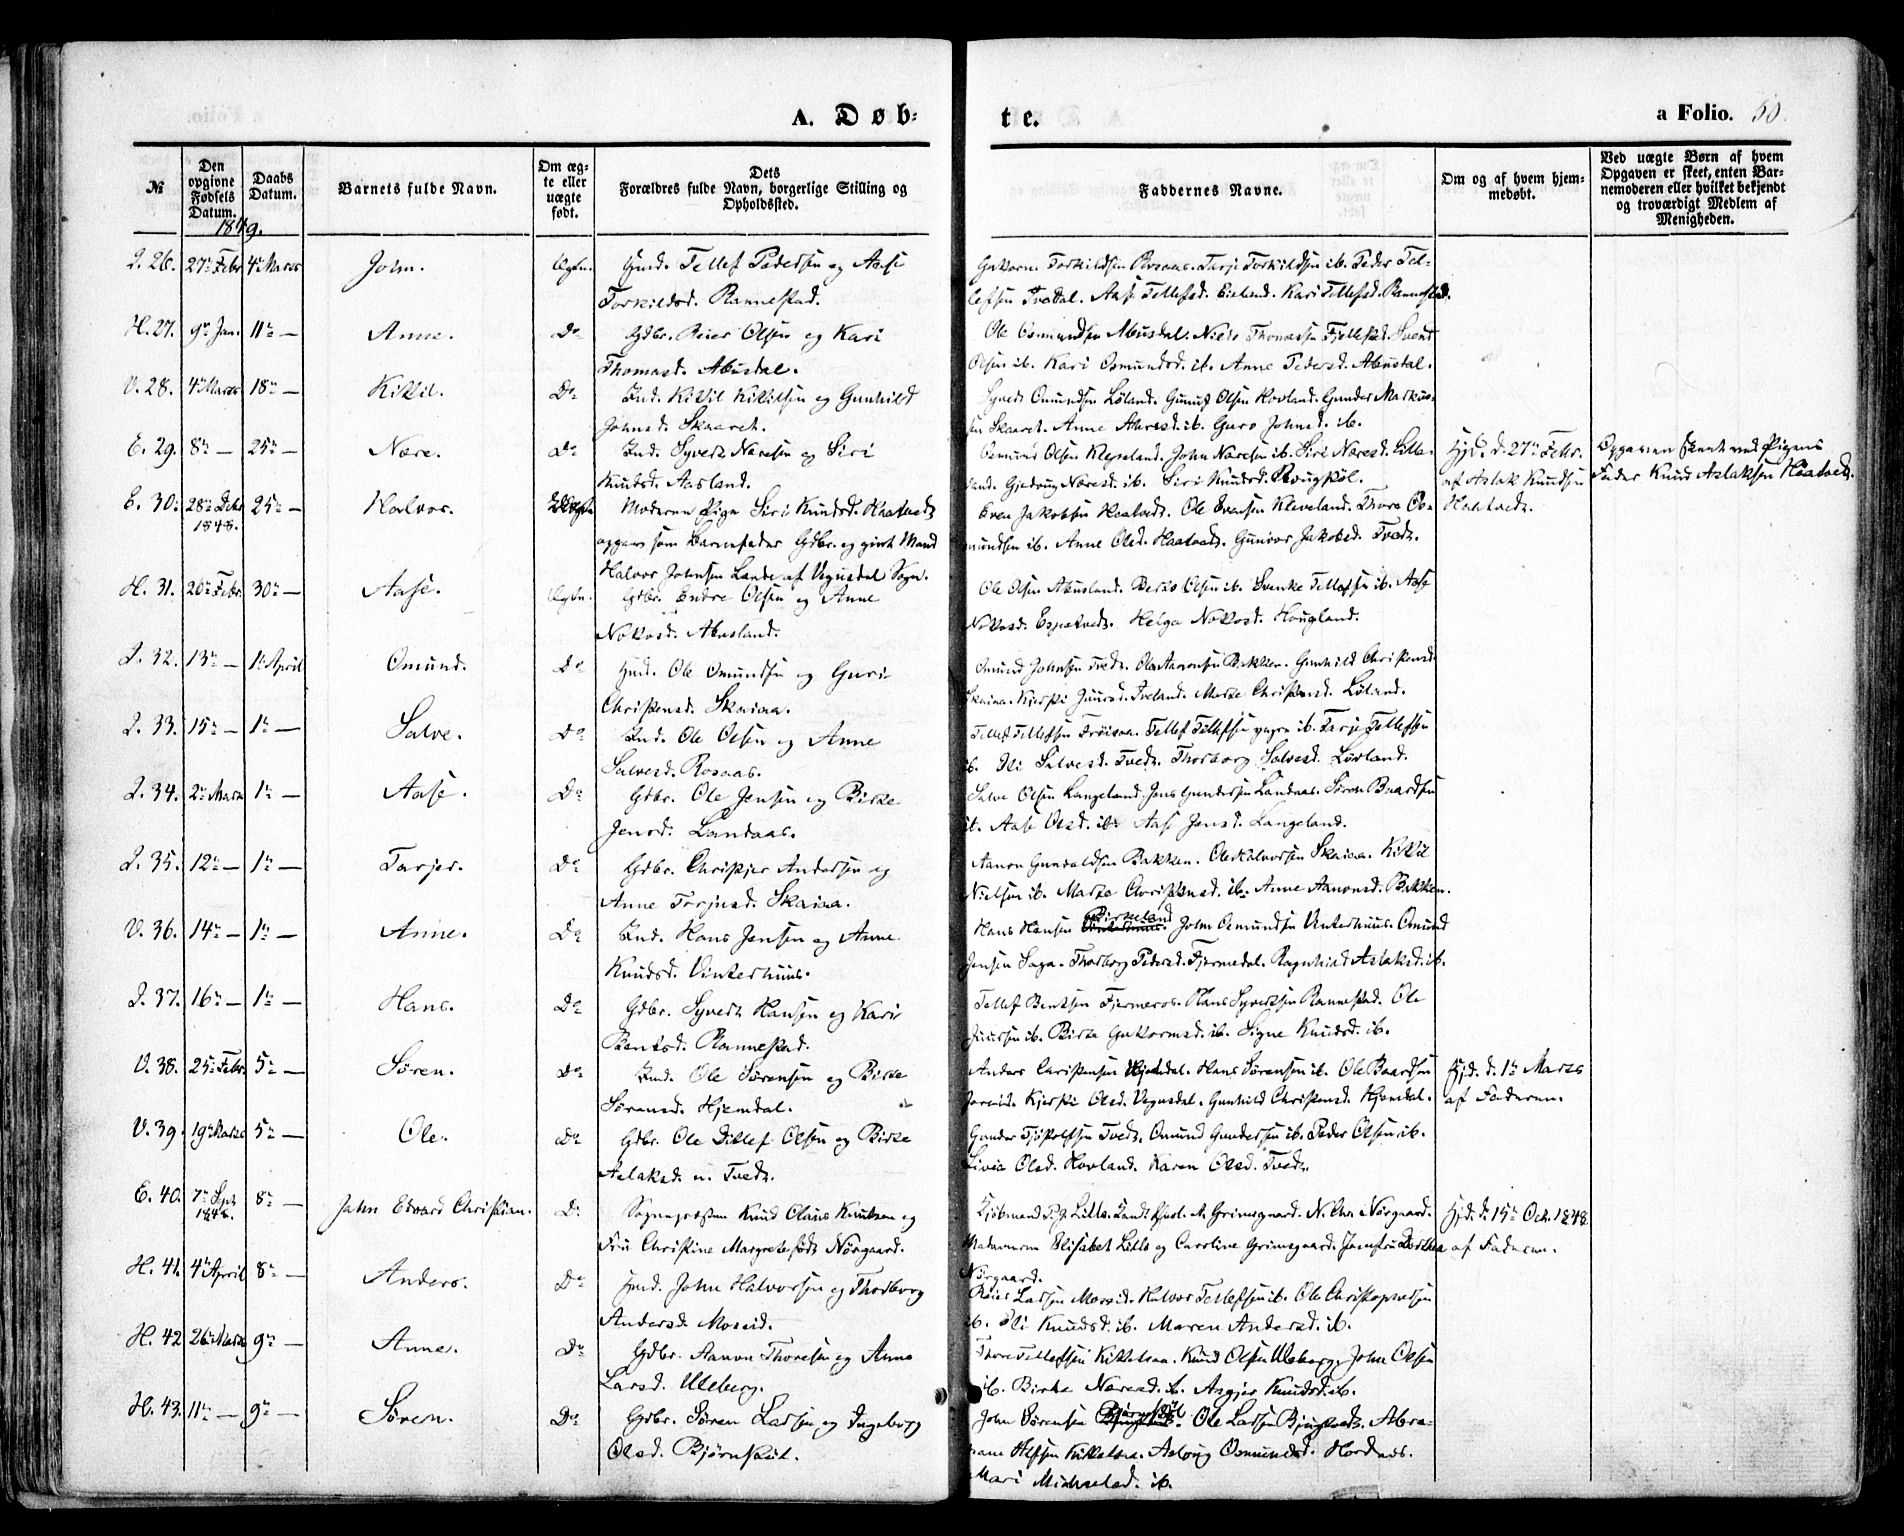 A. Døb=
te.
a Folio. 50.
№
Den opgivne Fødsels Datum.
Daabs Datum.
Barnets fulde Navn.
Om ægte eller uægte født.
Dets Forældres fulde Navn, borgerlige Stilling og Opholdssted.
Faddernes Navne.
Om og af hvem hjemmedøbt.
Ved uægte Børn af hvem Opgaven er skeet, enten Barnemoderen eller hvilket bekjendt og troværdigt Medlem af Menigheden.
1849.
26. 27de Febr. 4de Marts John. Ægte. Tellef Pedersen og Aase
Torkildsd. Rannestad.
Torkildsen Rosaas. Tarje Torkildsen ib. Peder Tel-
lefsen Tvedal. Aase Tellefsd. Eieland. Kari Tellefsd. Rannestad.
H. 27. 9de Jan. 11te — Anne. Do Gdbr. Reier Olsen og Kari
Thomasd. Abusdal.
Ole Osmundsen Abusdal. Niels Thomassen Fjellestad. Svend
Olsen ib. Kari Osmundsd. ib. Anne Pedersd. Abusdal.
V. 28. 4de Marts 18de — Kittil. Do Ind. Kittil Kittilsen og Gunhild
Johnsd. Skaaret.
Syvert Omundsen Løland. Gunuf Olsen Hovland. Gunder Markus-
sen Skaaret. Anne ib. Guro Johnsd. ib.
E. 29. 8de — 25de — Nære. Do Ind. Syvert Næresen og Siri
Knudsd. Aasland.
Osmund Olsen Klepsland. John Næresen ib. Siri Næresd. Lille-
land. Næresd. ib. Siri Knudsd.
E. 30. 28de Decbr 1848. 25de — Halvor. Moderen Pige Siri Knudsd. Haatvedt
opgav som Barnefader Gdbr. og gift Mand
Halvor Johnsen Lande af Vegusdal Sogn.
Even Jakobsen Haatvedt. Ole Evensen Kleveland. Thore Os-
mundsen ib. Anne Olsd. Haatvedt. Gunvor Jakobsd. Tvedt.
Hjd. d. 27de Febr.
af Aslak Knudsen
Haatvedt.
Opgaven skeet ved Pigens
Fader Knud Aslaksen Haatvedt.
H. 31. 20de Febr. 30te — Aase. Ægte. Gdbr. Endre Olsen og Anne
Abusland.
Ole Olsen Abusland. Olsen ib. Svenke Tellefsen ib. Aase
Espetvedt. Helga Hougland.
32. 13de — 1te April Omund. Do Ole Omundsen og Guri
Christensd. Skaiaa.
Omund Johnsen Tvedt. Ole Aanonsen Bakken. Gunhild Christensd.
Skaiaa. Kjersti Iveland. Marte Christensd. Løland.
33. 15de — 1te — Salve. Do Ind. Ole Olsen og Anne
Salvesd. Rosaas.
Tellef Tellefsen Frøisaa. Tellef Tellefsen yngre ib. Tarje Tellefsen
ib. Salvesd. Tvedt. Thorborg Salvesd. Løvland.
34. 2de Marts 1te — Aase. Do Gdbr. Ole Jensen og Birte
Jensd. Landaas.
Salve Olsen Langeland. Jens Gundersen Landaas. Søren Baardsen
ib. Aase Olsd. ib. Aase Jensd. Langeland.
35. 12te — 1te — Tarjer. Do Gdbr. Christjer Andersen og
Anne Tarjesd. Skaiaa.
Aanon Gunvaldsen Bakken. Ole Halvorsen Skaiaa. Kittil
Nielsen ib. Marte Christensd. ib. Anne Aanonsd. Bakken.
V. 36. 14de — 1te — Anne. Do Ind. Hans Jensen og Anne
Knudsd. Vinterhuus.
Hans Hansen Birkeland. John Osmundsen Vinterhuus. Omund
Jensen Saga. Thorborg Pedersd. Fjermedal. Ragnhild Aslaksd. ib.
37. 16de — 1te — Hans. Do Gdbr. Syvert Hansen og Kari
Bentsd. Rannestad.
Tellef Bentsen Fjermeros. Hans Syvertsen Rannestad. Ole
ib. Birte Guttormsd. ib. Signe Knudsd. ib.
V. 38. 25de Febr. 5te — Søren. Do Ind. Ole Sørensen og Birte
Sørensd. Hjemdal.
Anders Christensen Hjemdal. Hans Sørensen ib. Ole Baardsen
Kjersti Olsd. Vegusdal. Gunhild Christensd. Hjemdal.
Hjd. d. 1te Marts
af Faderen.
V. 39. 19de Marts 5te — Ole. Do Gdbr. Ole Ditlef Olsen og Birte
Aslaksd. n. Tvedt.
Gunder Tjøstolfsen Tvedt. Omund Gundersen ib. Peder Olsen ib.
Livia Olsd. Hovland. Karen Olsd. Tvedt.
E. 40. 7de Sept. 1848. 8de — John Edvard Christian. Do Sognepresten Knud Olaus Knutzen og
Fru Christine Margrete født Nørgaard.
Kjøbmand Lillo. A. Grimsgaard. N. Chr. Nørgaard.
Madamerne Elisabet Lillo og Caroline Grimsgaard. Jomfru Dorthea
Nørgaard.
Hjd. d. 15de Oct. 1848
af Faderen.
H. 41. 4de April 8de — Anders. Do John Halvorsen og Thorborg
Andersd. Moseid.
Reier Larsen Moseid. Halvor Tellefsen ib. Ole Christophersen
ib. Knudsd. ib. Maren Andersd. ib.
H. 42 26de Marts 9de — Anne. Do Gdbr. Aanon Thoresen og Anne
Larsd. Uleberg.
Thore Tellefsen Kittelsaa. Knud Olsen Uleberg. John Olsen
ib. Birte Næresd. ib. Asgjer Knudsd. ib.
H. 43. 11te — 9de — Søren. Do Gdbr. Søren Larsen og Ingeborg
Olsd. Bjørnstøl.
John Sørensen Bjørnstøl. Ole Larsen Abra-
ham Alfsen Kittelsaa. Aslaug Osmundsd. Hordnes.
Mari Michaelsd. ib.